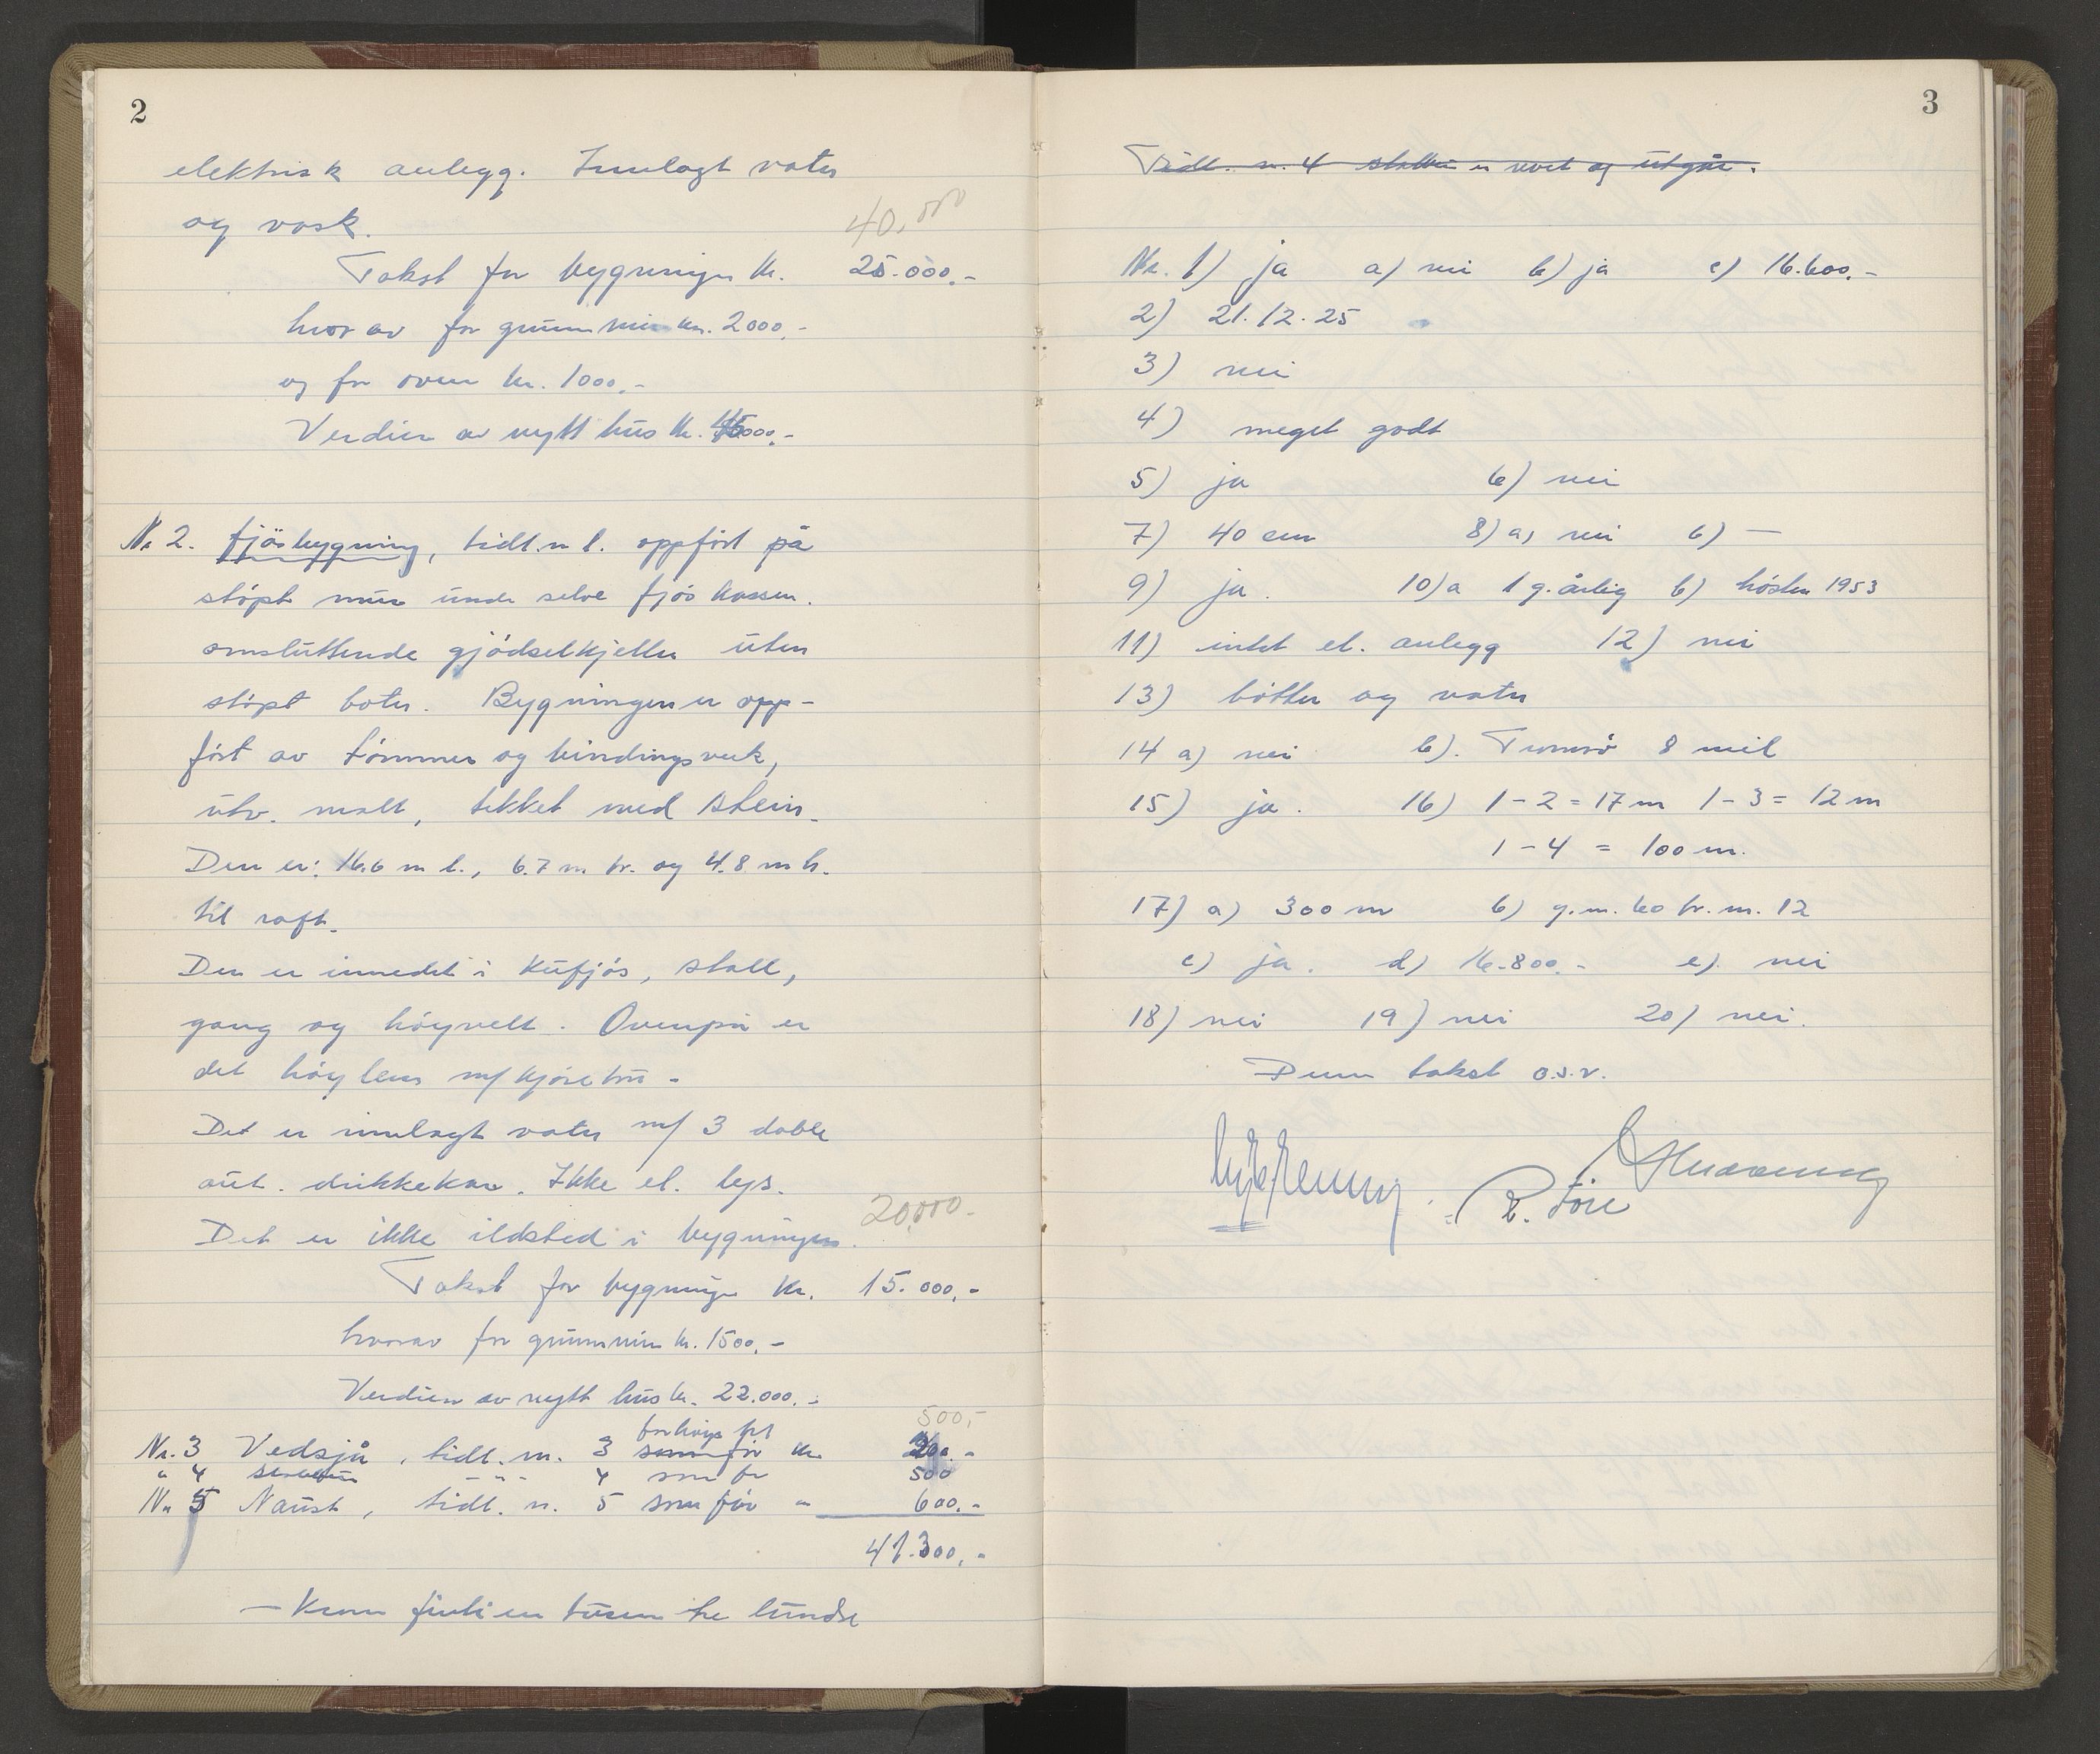 2
elektrisk anlegg. Innlagt vatn
og vask.
40.000
Takst for bygningen kr. 25.000.-
hvor av for grunnmur kr. 2000.-
og for ovner kr. 1000.-
Verdien av nytt hus kr. 45000.-
Nr 2. fjösbygning, tidl. nr 1. oppfört på
stöpt mur under selve fjös kassen.
omsluttende gjödselkjeller uten
stöpt botn. Bygningen er opp-
fört av tömmer og bindingsverk,
utv. malt, tekket med stein.
Den er: 16.6 m l., 6.7 m. br. og 4.8 m h.
til raft.
Den er innredet i kufjös, stall,
gang og höyvelt. Ovenpå er
det höylem m/ kjörebru.
Det er innlagt vatn m/ 3 doble
aut. drikkekar. Ikke el. lys.
Det er ikke ildsted i bygningen.
20.000.-
Takst for bygningen kr. 15.000.-
hvorav for grunnmur kr. 1500.-
Verdien av nytt hus kr. 22.000.-
500,-
forhöyet
Nr. 3 Vedsjå, tidl. nr. 3 som för kr 200.-
" 4 - " - 4 som för 500
Nr 5 Naust, tidl. nr. 5 som för " 600.-
41.300.-
— Kronr förti en tusen tre hundre
3
Tidl. nr. 4 stabbur er revet og utgår.
Nr. 1) ja a) nei b) ja c) 16.600.-
2) 21.12.25
3) nei
4) meget godt
5) ja 6) nei
7) 40 cm 8) a) nei b) —
9) ja. 10) a 1 g. årlig b) hösten 1953
11) intet el. anlegg 12) nei
13) bötter og vatn
14 a) nei b). Tromsö 8 mil
15) ja. 16) 1-2 = 17 m 1-3 = 12 m
1-4 = 100 m.
17) a) 300 m b) g.m. 60 br. m. 12
c) ja. d) 16.800.- e). nei
18) nei 19) nei 20) nei.
Denne takst o.s.v.